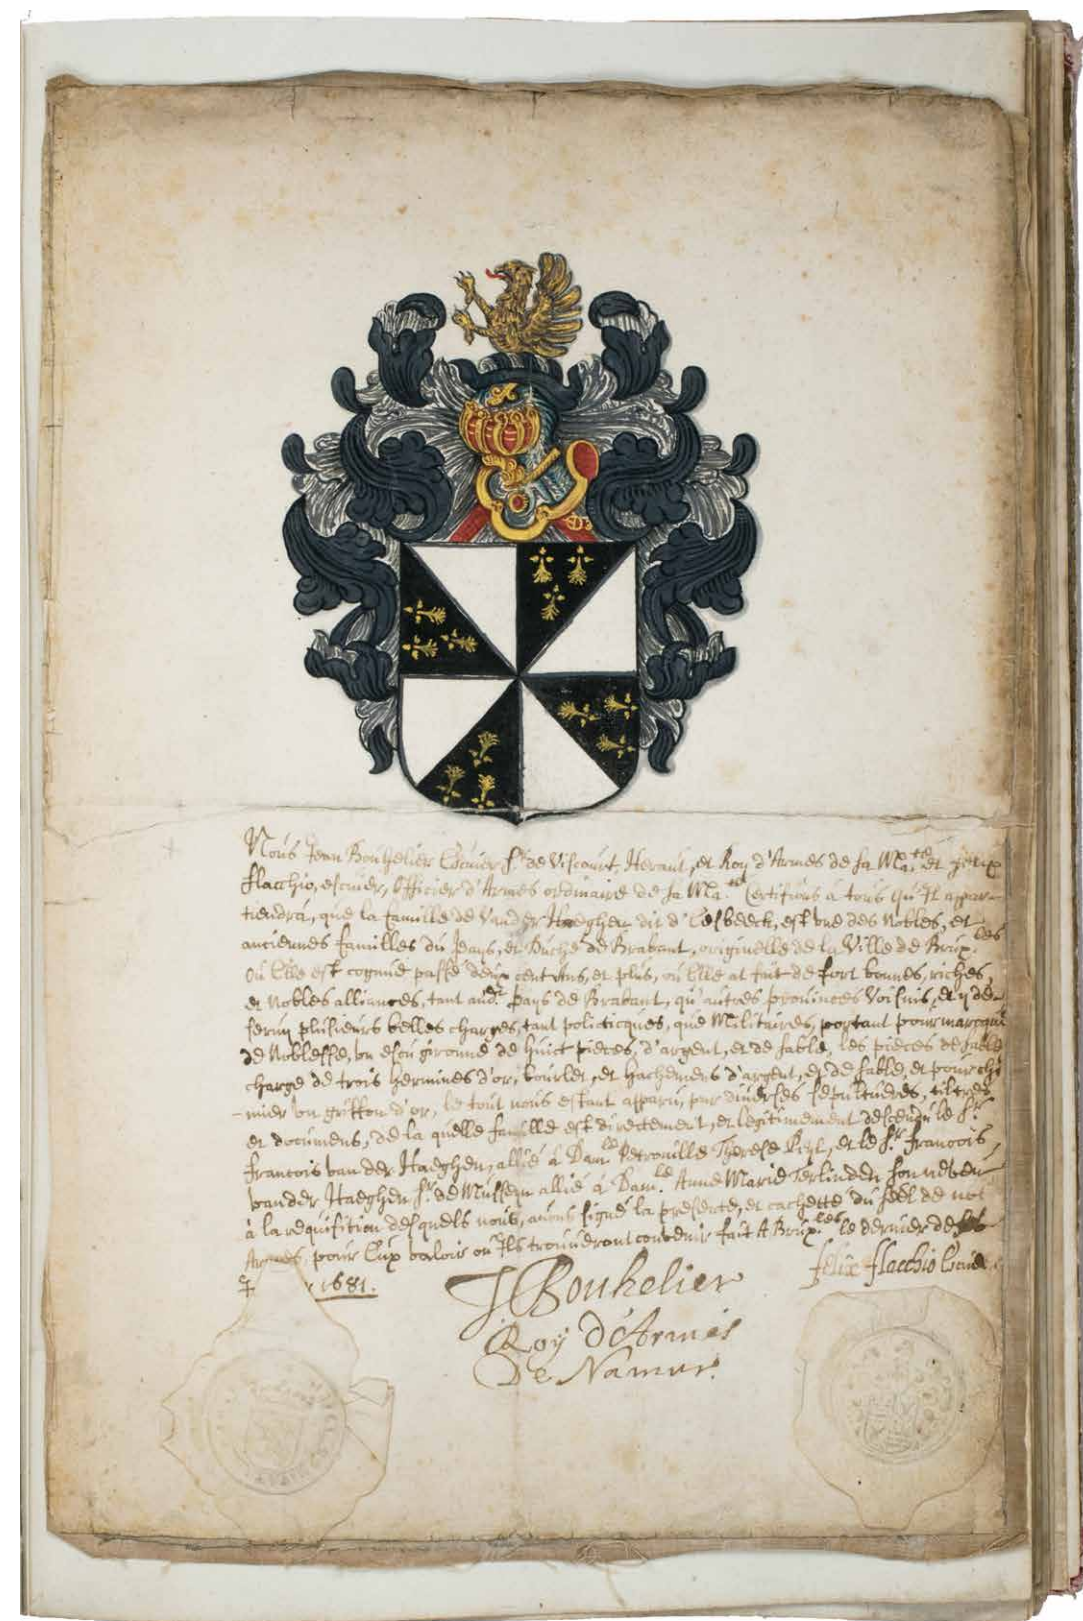 Nous Jean Bouhelier Escuier Sr. de Viscourt, Heraut, et Roy d'Armes de sa Ma.té et
flacchio, escuier, officier d'Armes ordinaire de sa Ma.té Certifions à tous qu'Il appar-
tiendra, que la famille de Vander Haeghen dit d'Eesbeeck, est une des Nobles, et
anciennes familles du Pays, et Duché de Brabant, originelle de la Ville de Brux.les
où Elle est cognue passé deux cent Ans, et plus, où Elle at fait de fort bonnes, riches,
et Nobles alliances, tant aud.t Pays de Brabant, qu'autres provinces Voisins, et y de-
servy plusieurs belles charges, tant politicques, que Militaires, portant pour marcque
de Noblesse, un escu gironné de huict pieces, d'argent, et de sable, les pieces de sable
chargé de trois hermines d'or, bourlet, et hachemens d'argent, et de sable, et pour chi
-mier un griffon d'or, le tout nous estant apparu, par diverses sepultures, tiltres
et documens, de la quelle famille est directement, et legitimement descendu le Sr.
francois van der Haeghen, allié à Dam.lle Petronille Therese, et le Sr. francois
vander Haeghen Sr. de Mussem allié à Dam.le Anne Marie Terlinden son neveu
à la requisition desquels nous, avons signé la presente, et cachetté du seel de noz
Armes, pour Eux valoir où Ils trouveront convenir fait A Brux.les le dernier de
1681.
J Bouhelier
Roy d'Armes
De Namur.
felix flacchio Escuier